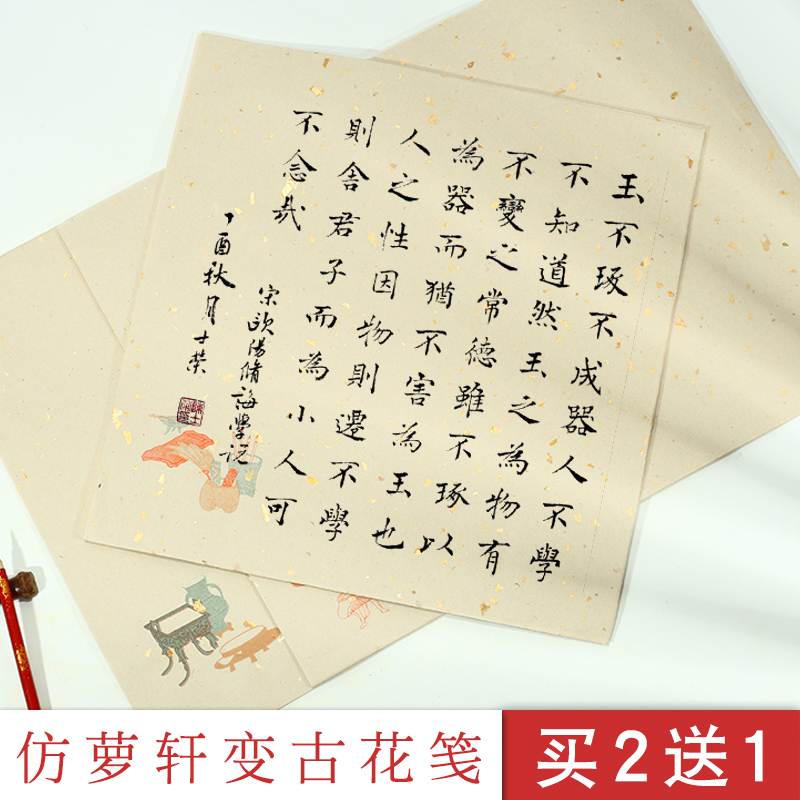 玉不琢不成器人不學
不知道然玉之為物有
不變之常德雖不琢以
為器而猶不害為玉也
人之性因物則遷不學
則舍君子而為小人可
不念哉
宋欧陽脩誨學说
丁酉秋月士荣
仿萝轩变古花笺
买2送1